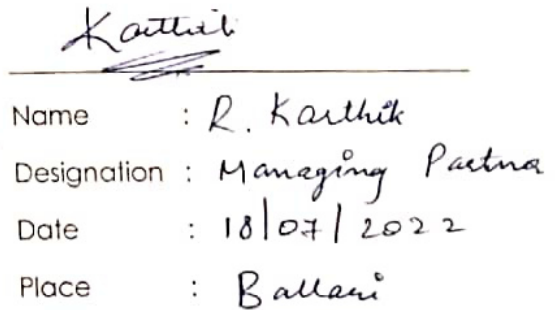 Karthik
Name : R. Karthik
Designation : Managing Partner
Date : 18/07/2022
Place : Ballari